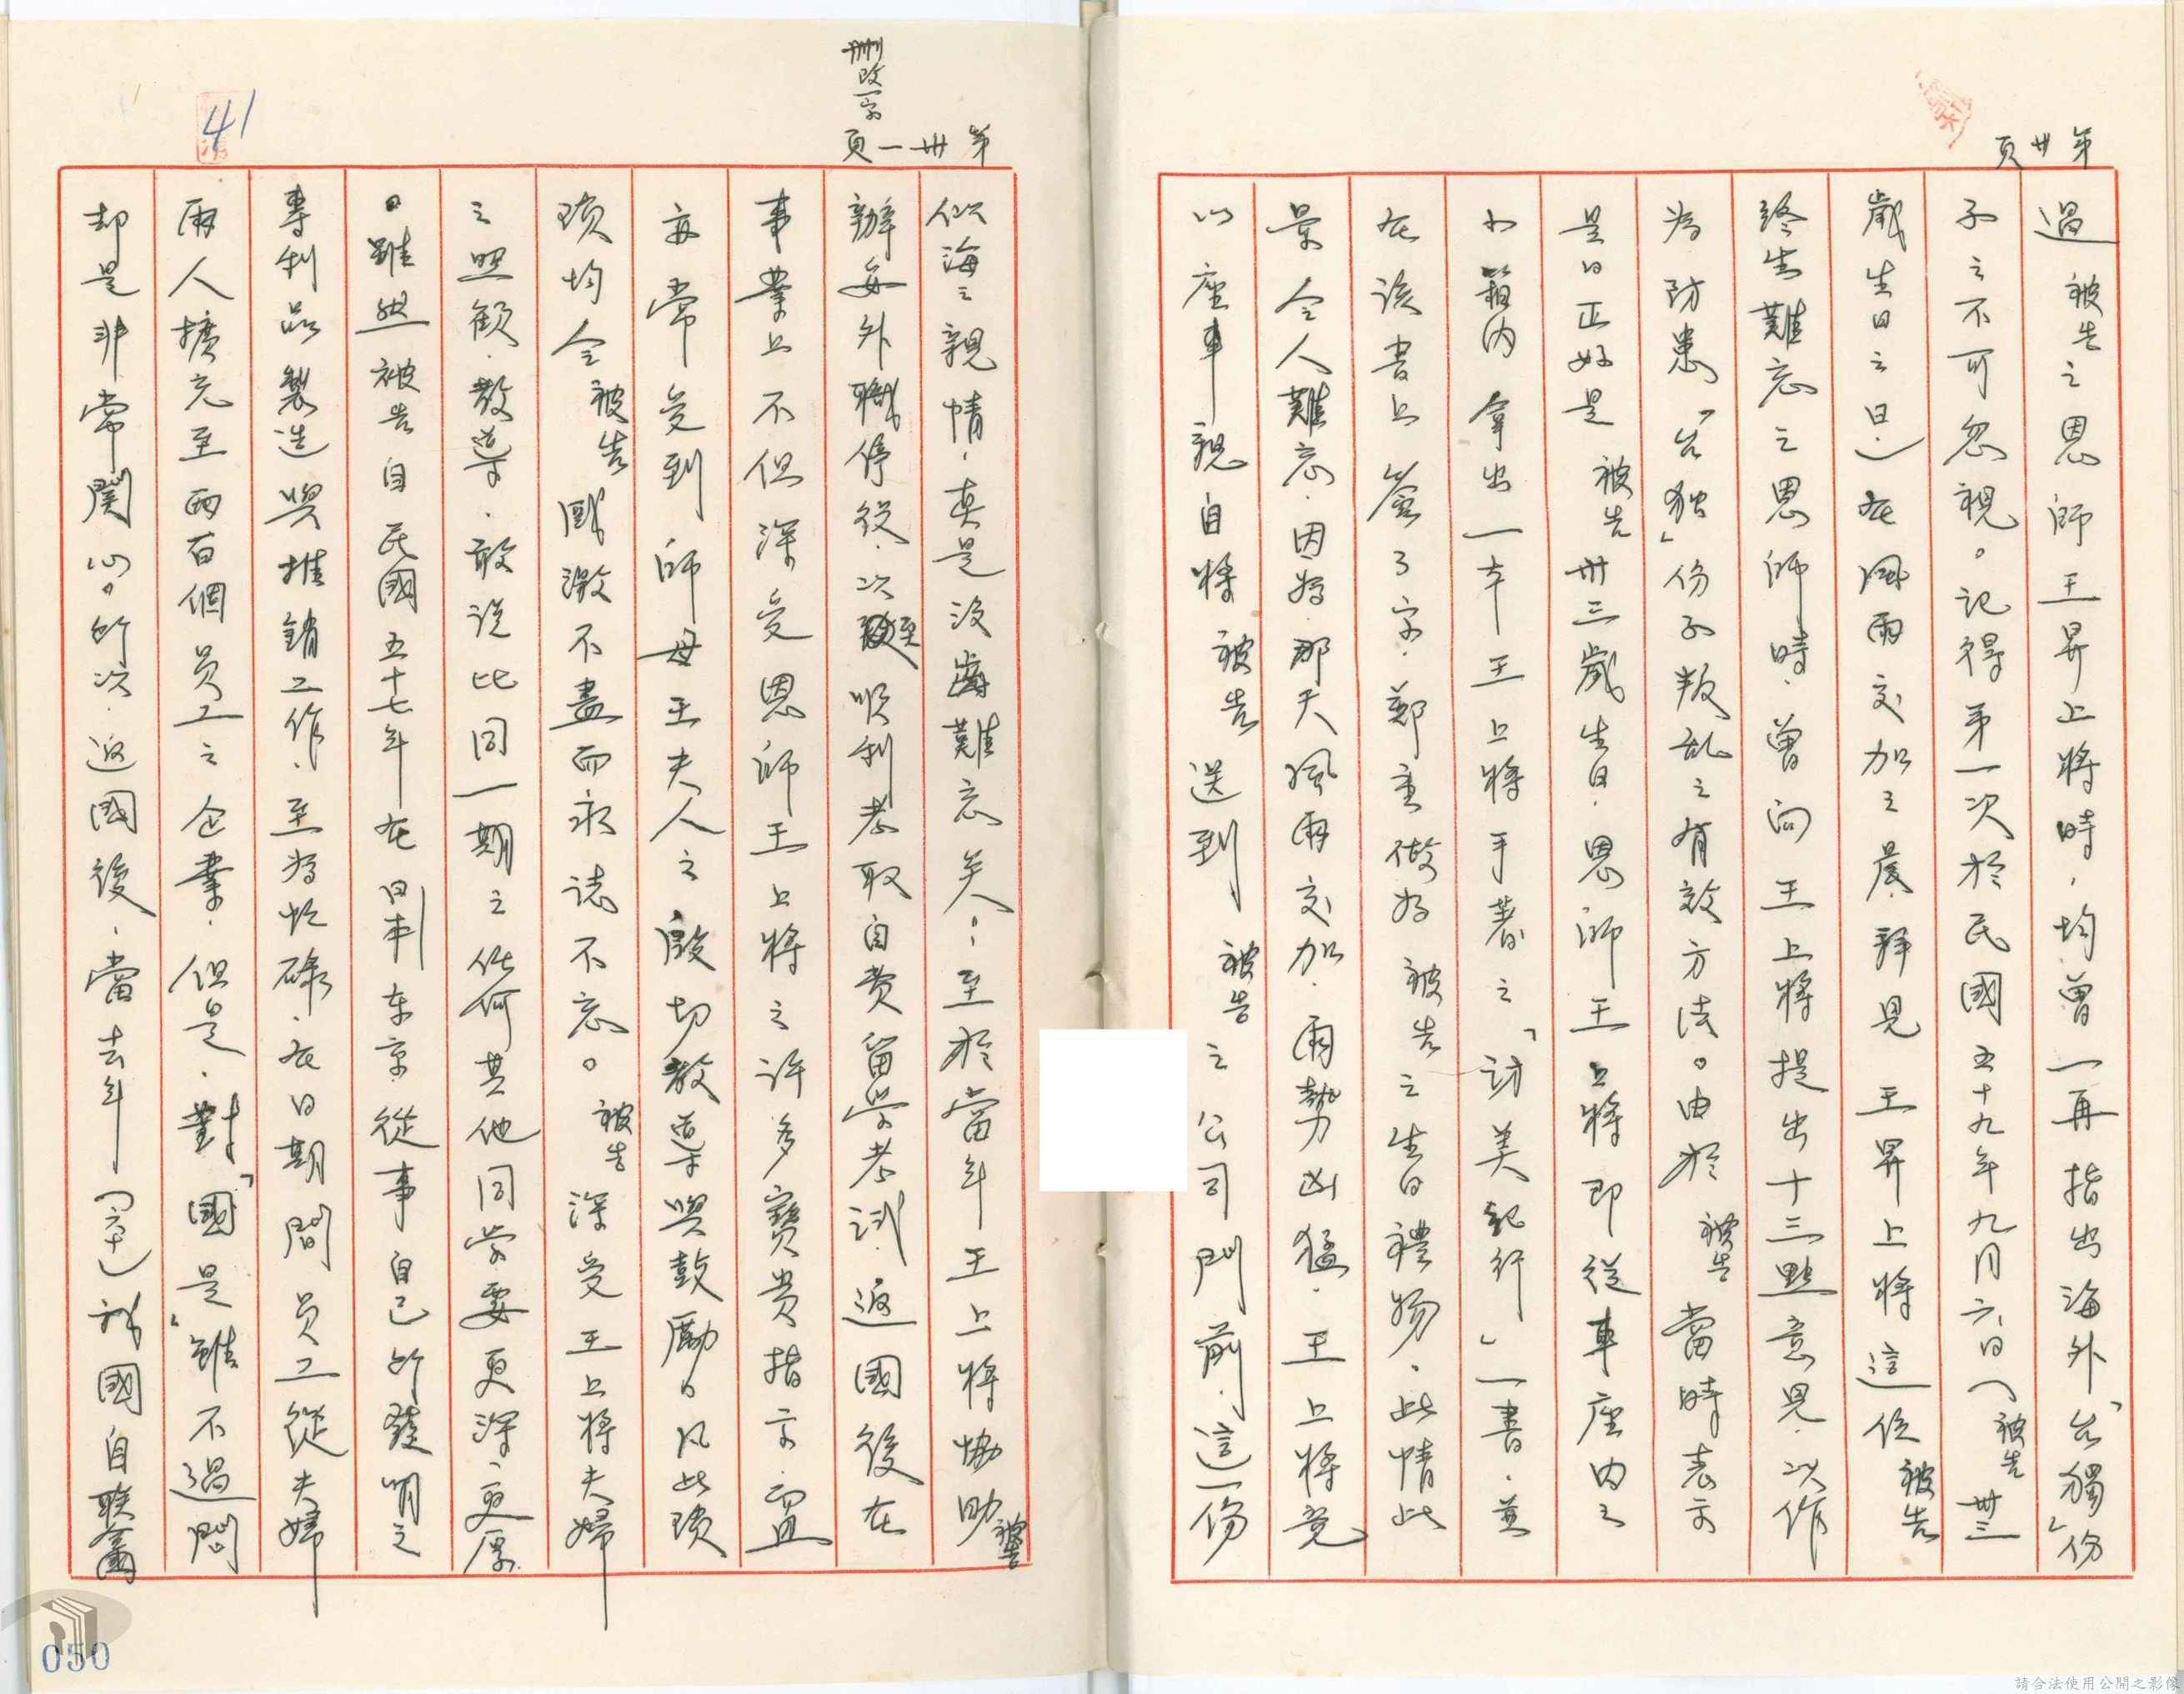 第卅頁
過被告之恩師王昇上將時，均曾一再指出海外「台獨」份
子之不可忽視。記得第一次於民國五十九年九月六日（被告卅三
歲生日之日）在風雨交加之晨，拜見王昇上將這位被告
終生難忘之恩師時，曾向王上將提出十三點意見，以作
為防患「台独」份子叛乱之有效方法。由於被告當時表示
是日正好是被告卅三歲生日，恩師王上將即從車座内之
小箱內拿出一本王上將手著之「訪美紀行」一書，並
在該書上簽了字，鄭重做為被告之生日禮物，此情此
景令人難忘，因為那天風雨交加，雨勢凶猛，王上將竟
以座車親自將被告送到被告之公司門前，這一份
刪改一字
第卅一頁
似海之親情，真是沒齒難忘矣，至於當年王上將協助被告
辦妥外職停役，以至順利考取自費留學考試，返國後在
事業上不但深受恩師王上將之許多寶貴指示，而且
亦常受到師母王夫人之殷切教導與鼓勵，凡此項
項均令被告感激不盡而永誌不忘。被告深受王上將夫婦
之照顧，教導，敢說比同一期之任何其他同學要更深，更厚
。雖然被告自民國五十七年在日本東京從事自己所發明之
專利品製造與推銷工作，至為忙碌，在日期間員工從夫婦
兩人擴充至兩百個員工之企業，但是，對「國是」雖不過問
却是非常關心。所以，返國後，當去年（六十）我國自聯合國
41
050
請合法使用公開之影像